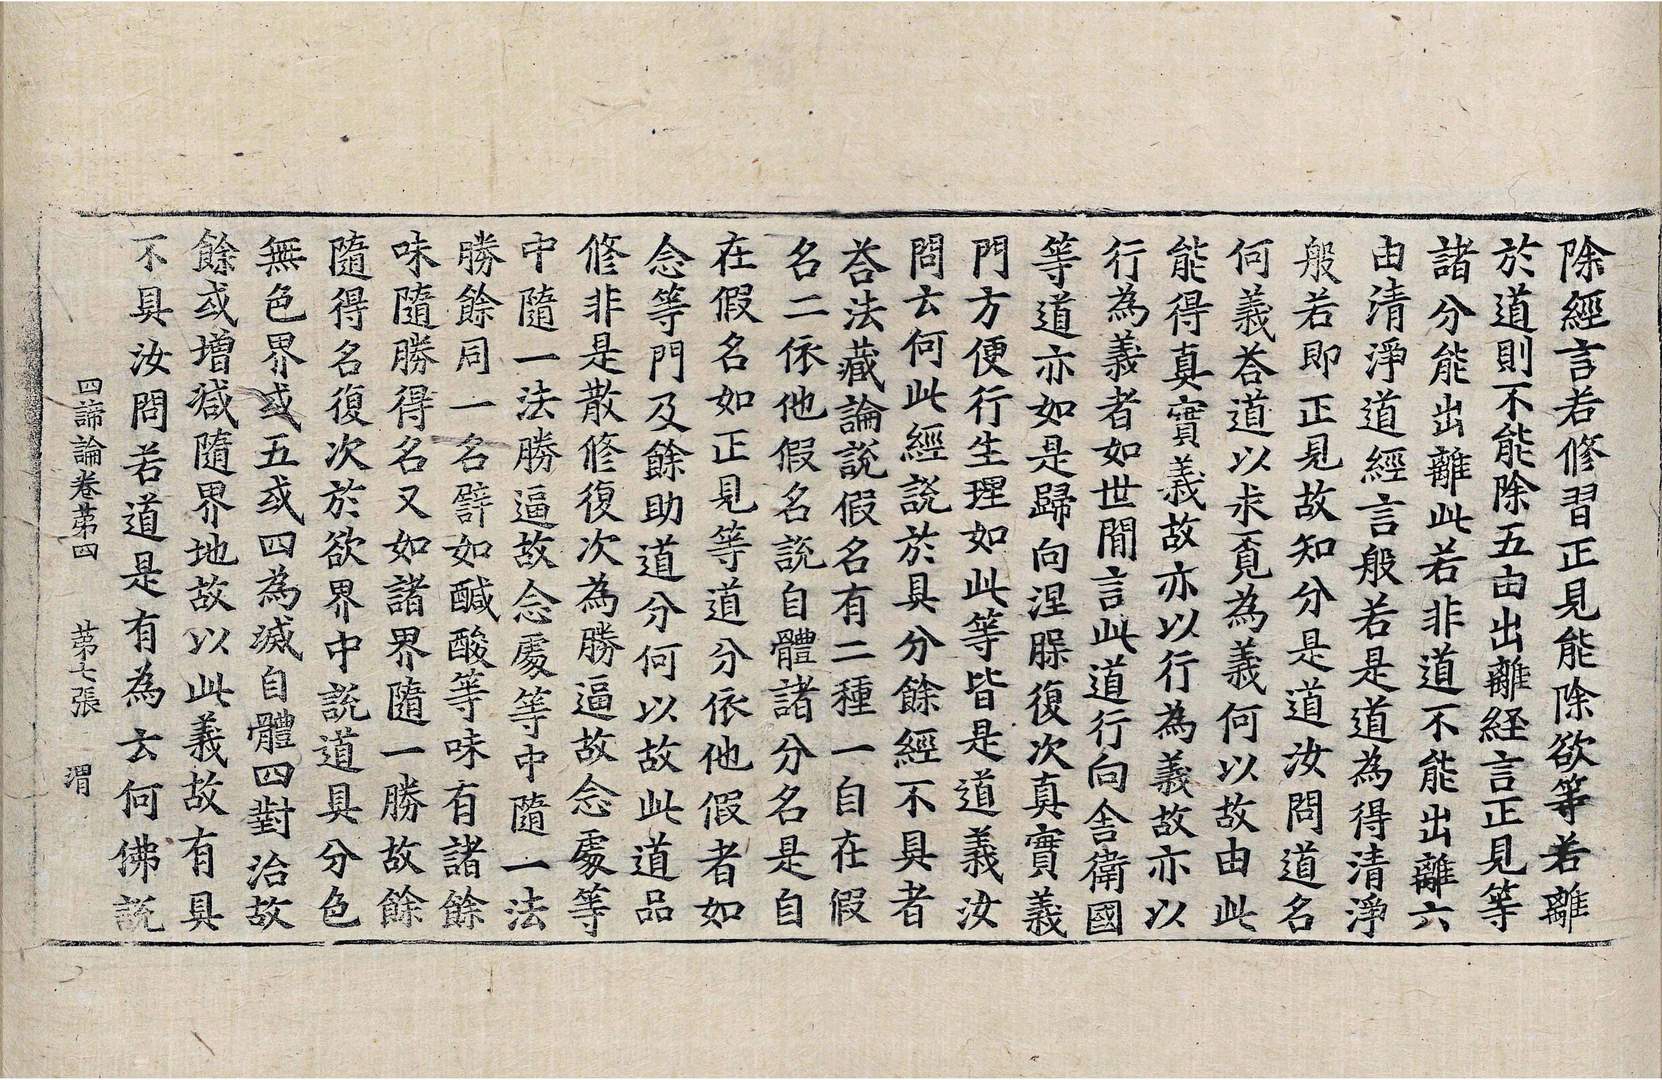 除經言若修習正見能除欲等若離
於道則不能除五由出離経言正見等
諸分能出離此若非道不能出離六
由清淨道經言般若是道為得清淨
般若即正見故知分是道汝問道名
何義荅道以求覓為義何以故由此
能得真實義故亦以行為義故亦以
行為義者如世間言此道行向舎衛國
等道亦如是歸向涅槃復次真實義
門方便行生理如此等皆是道義汝
問云何此經說於具分餘經不具者
荅法藏論說假名有二種一自在假
名二依他假名說自體諸分名是自
在假名如正見等道分依他假者如
念等門及餘助道分何以故此道品
修非是散修復次為勝逼故念處等
中隨一法勝逼故念處等中隨一法
勝餘同一名譬如醎酸等味有諸餘
味隨勝得名又如諸界隨一勝故餘
隨得名復次於欲界中說道具分色
無色界或五或四為滅自體四對治故
餘或增減隨界地故以此義故有具
不具汝問若道是有為云何佛說
四諦論卷苐四　苐七張　渭